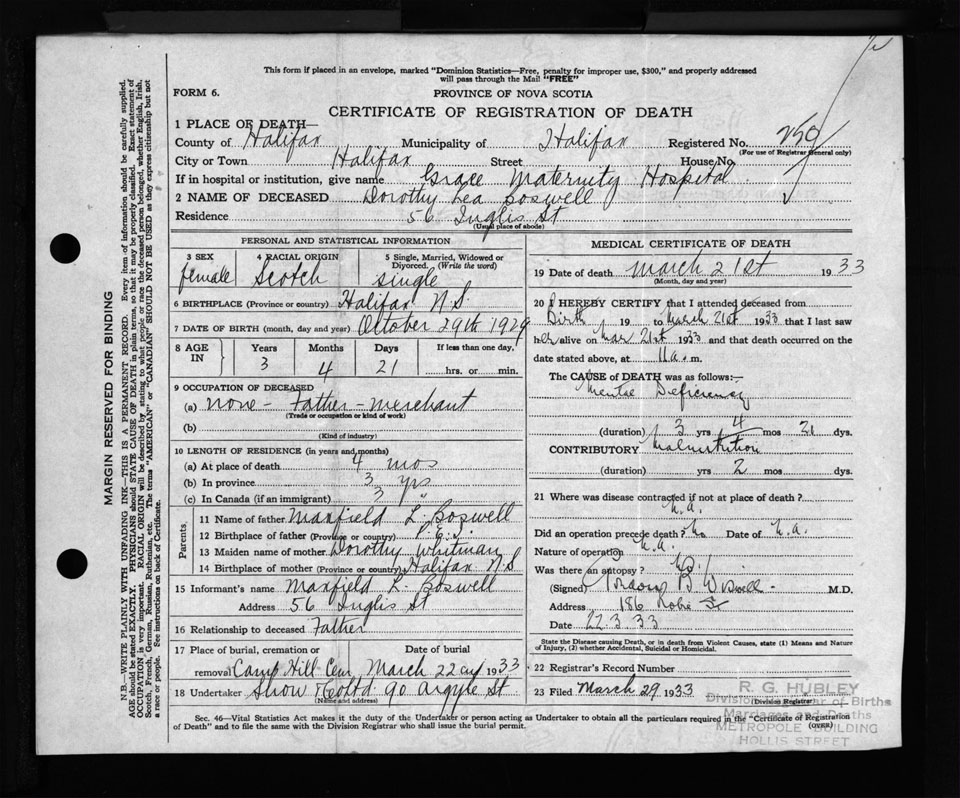 This form if placed in an envelope, marked "Dominion Statistics—Free, penalty for improper use, $300," and properly addressed
will pass through the Mail "FREE"
FORM 6.
PROVINCE OF NOVA SCOTIA
CERTIFICATE OF REGISTRATION OF DEATH
1 PLACE OF DEATH—
County of Halifax Municipality of Halifax Registered No. 250
(For use of Registrar General only)
City or Town Halifax Street House No.
If in hospital or institution, give name Grace Maternity Hospital
2 NAME OF DECEASED Dorothy Lea Boswell
Residence 56 Inglis St
(Usual place of abode)
MARGIN RESERVED FOR BINDING
N.B.—WRITE PLAINLY WITH UNFADING INK—THIS IS A PERMANENT RECORD. Every item of information should be carefully supplied.
AGE should be stated EXACTLY. PHYSICIANS should STATE CAUSE OF DEATH in plain terms, so that it may be properly classified. Exact statement of
OCCUPATION is very important. RACIAL ORIGIN will be described by stating to what people or race the deceased person belonged, whether English, Irish,
Scotch, French, German, Russian, Ruthenian, etc. The terms "AMERICAN" or "CANADIAN SHOULD NOT BE USED as they express citizenship but not
a race or people. See instructions on back of Certificate.
PERSONAL AND STATISTICAL INFORMATION
3 SEX female
4 RACIAL ORIGIN Scotch
5 Single, Married, Widowed or
Divorced. (Write the word)
single
6 BIRTHPLACE (Province or country) Halifax N.S.
7 DATE OF BIRTH (month, day and year) October 29th 1929
8 AGE IN
Years Months Days If less than one day,
3 4 21 hrs. or min.
9 OCCUPATION OF DECEASED
(a) none - Father - merchant
(Trade or occupation or kind of work)
(b)
(Kind of industry)
10 LENGTH OF RESIDENCE (in years and months)
(a) At place of death 4 mos
(b) In province 3 yrs
(c) In Canada (if an immigrant) 3 "
Parents
11 Name of father Maxfield L. Boswell
12 Birthplace of father (Province or country) P.E.I.
13 Maiden name of mother Dorothy Whitman
14 Birthplace of mother (Province or country) Halifax N.S
15 Informant's name Maxfield L. Boswell
Address 56 Inglis St
16 Relationship to deceased Father
17 Place of burial, cremation or Date of burial
removal Camp Hill Cem March 22nd 1933
18 Undertaker Snow & Co Ltd 90 Argyle St
(Name and address)
MEDICAL CERTIFICATE OF DEATH
19 Date of death March 21st 1933
(Month, day and year)
20 I HEREBY CERTIFY that I attended deceased from
Birth 19 to March 21st 1933 that I last saw
her alive on Mar 21st 1933 and that death occurred on the
date stated above, at 11 a. m.
The CAUSE of DEATH was as follows:—
Mental Deficiency
(duration) 3 yrs 4 mos 21 dys.
CONTRIBUTORY Malnutrition
(duration) yrs 2 mos dys.
21 Where was disease contracted if not at place of death?
n.a.
Did an operation precede death? No Date of n.a.
Nature of operation n.a.
Was there an autopsy? No
(Signed) M.D.
Address 186 Robie St
Date 22.3.33
State the Disease causing Death, or in death from Violent Causes, state (1) Means and Nature
of Injury, (2) whether Accidental, Suicidal or Homicidal.
22 Registrar's Record Number
23 Filed March 29 1933
(Division Registrar)
R. G. HUBLEY
Division Registrar of Births
Marriages and Deaths
METROPOLE BUILDING
HOLLIS STREET
Sec. 46—Vital Statistics Act makes it the duty of the Undertaker or person acting as Undertaker to obtain all the particulars required in the "Certificate of Registration
of Death" and to file the same with the Division Registrar who shall issue the burial permit.
(OVER)